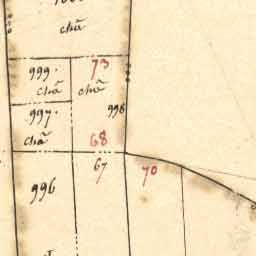 chã
999.
73
chã
chã
998
997.
chã
68
67
70
996